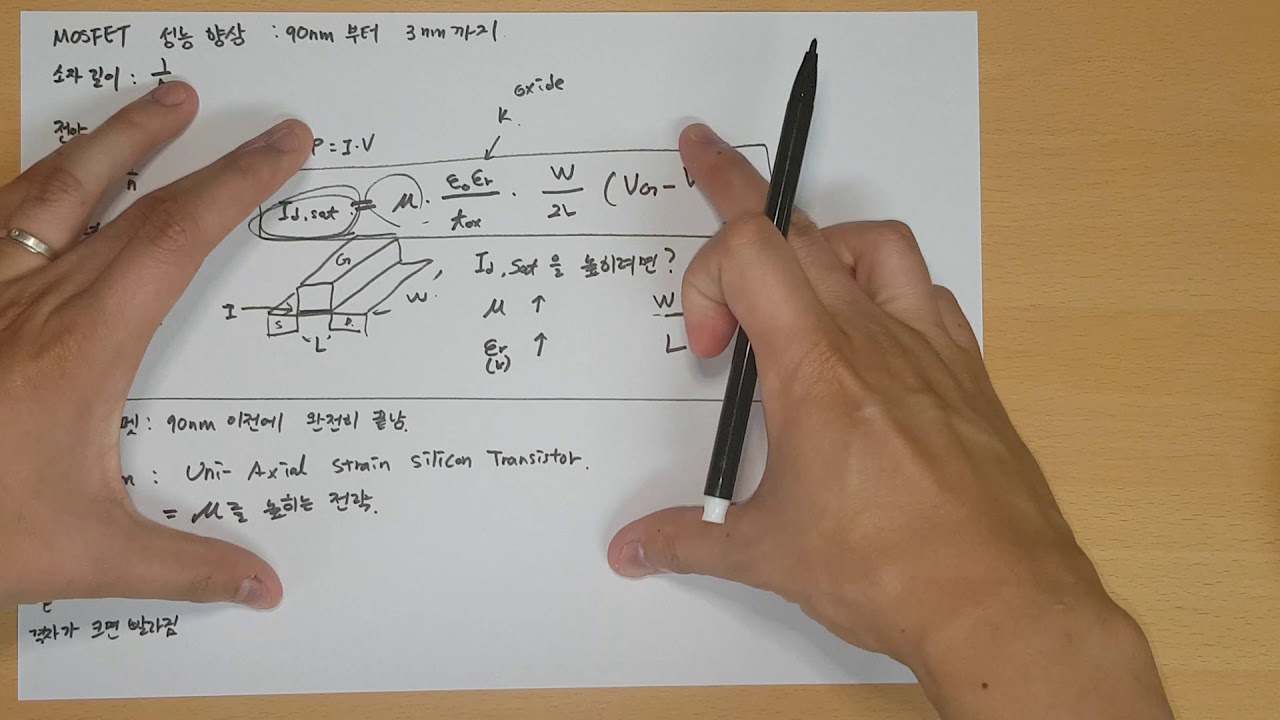 MOSFET 성능 향상 : 90nm 부터 3nm 까지
소자 길이 : 1
전압
P = I·V
oxide
k
Id,sat = μ · ε₀εr / tox · W / 2L (VG -
G
I
S
D
L
W
Id,sat 을 높히려면?
μ ↑
W
εr ↑
(k)
L
90nm 이전에 완전히 끝남.
: Uni- Axial Strain Silicon Transistor.
= μ를 높히는 전략.
격자가 크면 빨라짐